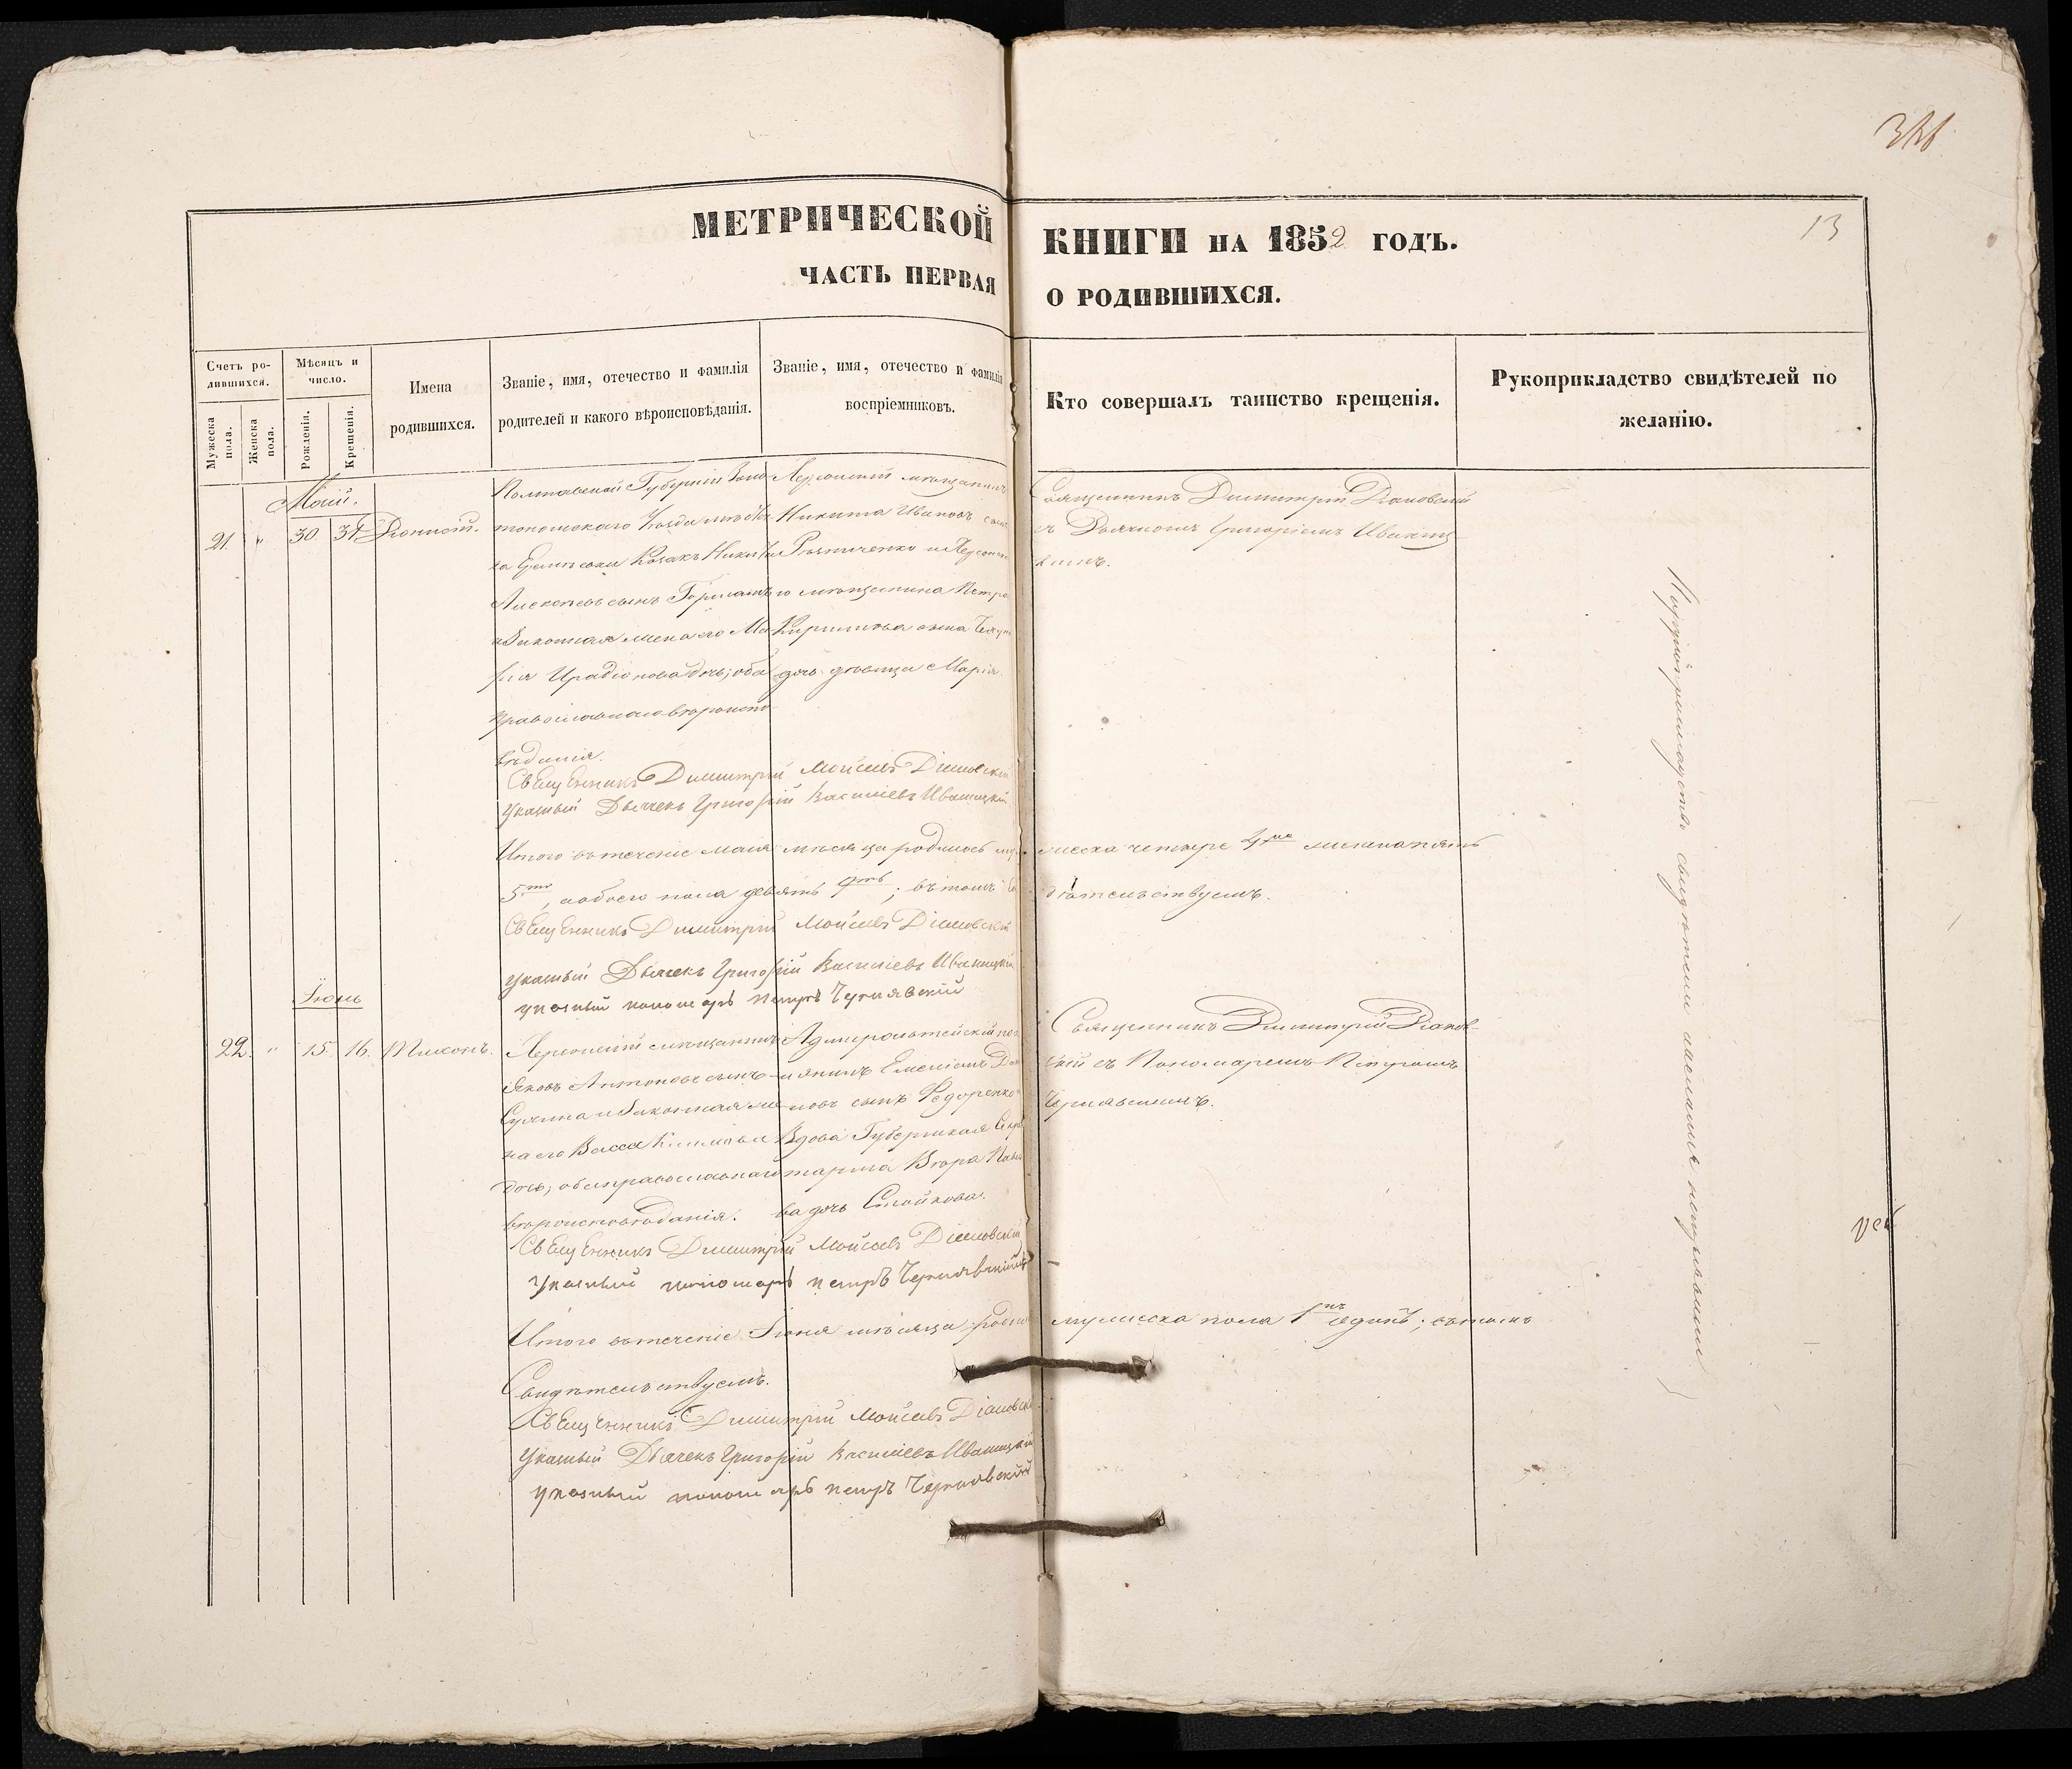 13
МЕТРИЧЕСКОЙ КНИГИ НА 1852 ГОДЪ.
ЧАСТЬ ПЕРВАЯ О РОДИВШИХСЯ.
Счетъ родившихся.
Мужеска пола.
Женска пола.
Мѣсяцъ и число.
Рожденія.
Крещенія.
Имена родившихся.
Званіе, имя, отечество и фамилія родителей и какого вѣроисповѣданія.
Званіе, имя, отечество и фамилія воспріемниковъ.
Кто совершалъ таинство крещенія.
Рукоприкладство свидѣтелей по желанію.
Маій.
21. " 30 31 Діонисій.
Полтавской Губерніи Золо
тоношскаго Уѣзда
Козакъ Никита
Алексѣевъ сынъ
и Законная жена его Ма
рія Иродіонова дочь; оба
православнаго вѣроиспо
вѣданія.
Херсонскій мѣщанинъ
Никита Ивановъ сынъ
и Херсонска
го мѣщанина Петра
Кирилова сына
дочь девица Марія.
Священникъ Димитрій Діановскій
съ Дьячкомъ Григоріемъ Иваниц
кимъ.
СвЕщЕнникъ Димитрій Моисеевъ Діановскій
Указный Дьячекъ Григорій Васильевъ Иваницкій
Итого въ теченіе маія мѣсяца родилось му жеска четыре 4ре женска пять
5ть, а обоего пола девять 9ть; въ томъ сви дѣтельствуемъ.
СвЕщЕнникъ Димитрій Моисеевъ Діановскій
Указный Дьячекъ Григорій Васильевъ Иваницкій
указный пономарь петръ Чернявскій
Іюнь
22. " 15. 16. Тихонъ.
Херсонскій мѣщанинъ
Яковъ Антоновъ сынъ
и Законная же
на его Васса Климова
дочь, оба православнаго
вѣроисповѣданія.
Адмиралтейскій по
селянинъ Емеліанъ
новъ сынъ Федоренко
Вдова Губернская Секре
тарша Вѣра Павло
ва дочь Стойкова.
Священникъ Димитрій Діанов
скій съ Пономаремъ Петромъ
Чернявскимъ.
СвЕщЕнникъ Димитрій Моисеевъ Діановскій
Указный пономарь петръ Чернявскій
Итого въ теченіе Іюня мѣсяца роди мужеска пола 1нъ одинъ; въ томъ
Свидѣтельствуемъ.
СвЕщЕнникъ Димитрій Моисеевъ Діановскій
Указный Дьячекъ Григорій Васильевъ Иваницкій
Указный пономарь петръ Чернявскій
свидѣтели